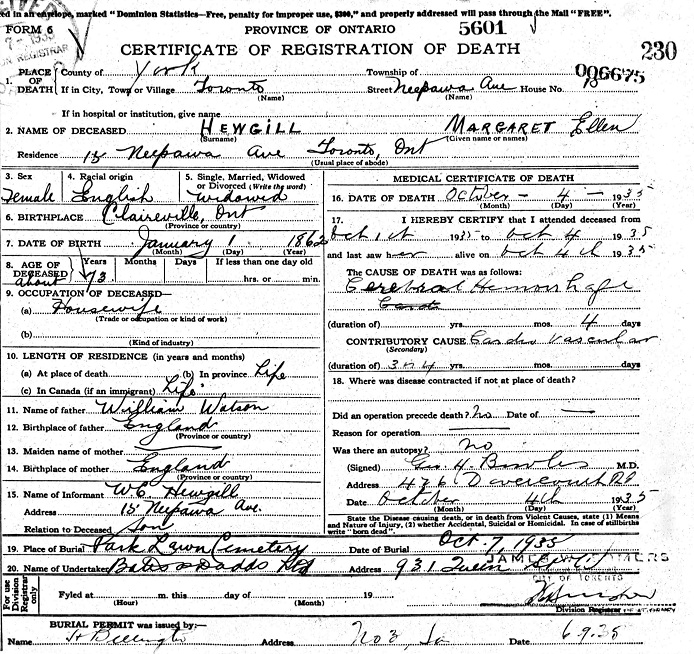 ed in an envelope, marked "Dominion Statistics—Free, penalty for improper use, $300," and properly addressed will pass through the Mail "FREE".
FORM 6 PROVINCE OF ONTARIO 5601
CERTIFICATE OF REGISTRATION OF DEATH 230
1. PLACE OF DEATH County of York Township of 006675
If in City, Town or Village Toronto (Name) Street Neepawa Ave House No. (Name)
If in hospital or institution, give name
2. NAME OF DECEASED HEWGILL (Surname) MARGARET Ellen (Given name or names)
Residence 15 Neepawa Ave Toronto, Ont (Usual place of abode)
3. Sex Female
4. Racial origin English
5. Single, Married, Widowed or Divorced (Write the word) Widowed
6. BIRTHPLACE Claireville, Ont (Province or country)
7. DATE OF BIRTH January 1 1862 (Month) (Day) (Year)
8. AGE OF DECEASED about Years 73 Months Days If less than one day old hrs. or min.
9. OCCUPATION OF DECEASED—
(a) Housewife (Trade or occupation or kind of work)
(b) (Kind of industry)
10. LENGTH OF RESIDENCE (in years and months)
(a) At place of death (b) In province Life
(c) In Canada (if an immigrant) Life
11. Name of father William Watson
12. Birthplace of father England (Province or country)
13. Maiden name of mother —
14. Birthplace of mother England (Province or country)
15. Name of Informant W.C. Hewgill
Address 15 Neepawa Ave.
Relation to Deceased Son
MEDICAL CERTIFICATE OF DEATH
16. DATE OF DEATH October - 4 - 1935 (Month) (Day) (Year)
17. I HEREBY CERTIFY that I attended deceased from
Oct 1st 1935 to Oct 4 1935
and last saw her alive on Oct 4th 1935
The CAUSE OF DEATH was as follows:
Cerebral Hemorrhage
(duration of) yrs. mos. 4 days
CONTRIBUTORY CAUSE Cardio Vascular (Secondary)
(duration of) yrs. mos. days
18. Where was disease contracted if not at place of death?
Did an operation precede death? No Date of —
Reason for operation —
Was there an autopsy? No
(Signed) Geo H. Bowles M.D.
Address 476 Dovercourt Rd
Date October 4th 1935 (Month) (Day) (Year)
State the Disease causing death, or in death from Violent Causes, state (1) Means and Nature of Injury, (2) whether Accidental, Suicidal or Homicidal. In case of stillbirths write "born dead".
19. Place of Burial Park Lawn Cemetery Date of Burial Oct. 7 1935
20. Name of Undertaker Bates & Dodds Address 931 Queen
CITY OF TORONTO
For use Division Registrar only
Fyled at (Hour) m. this day of (Month) 19
Division Registrar
BURIAL PERMIT was issued by:—
Name Address No 3 Date 6-9-35